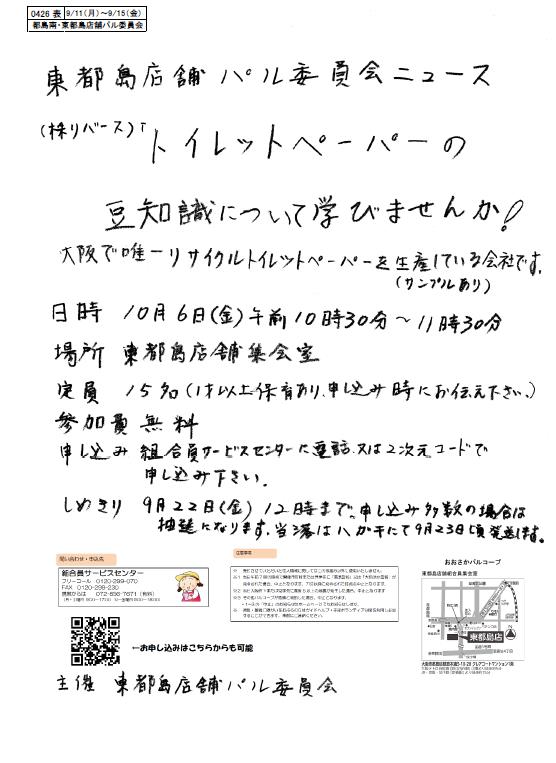 0426 表 9/11(月)~9/15(金)
都島南・東都島店舗パル委員会
東都島店舗パル委員会ニュース
(株リバース)「トイレットペーパーの
豆知識について学びませんか!
大阪で唯一リサイクルトイレットペーパーを生産している会社です。
(サンプルあり)
日時 10月6日(金)午前10時30分~11時30分
場所 東都島店舗集会室
定員 15名(1才以上保育あり、申し込み時にお伝え下さい。)
参加費 無料
申し込み 組合員サービスセンターに電話、又は2次元コードで
申し込み下さい。
しめきり 9月22日(金)12時まで。申し込み多数の場合は
抽選になります。当落はハガキにて9月23日頃発送します。
問い合わせ・申込先
組合員サービスセンター
フリーコール 0120-299-070
FAX 0120-298-230
携帯からは 072-856-7671(有料)
注意事項
おおさかパルコープ
東都島店舗組合員集会室
東都島店
←お申し込みはこちらからも可能
主催 東都島店舗パル委員会